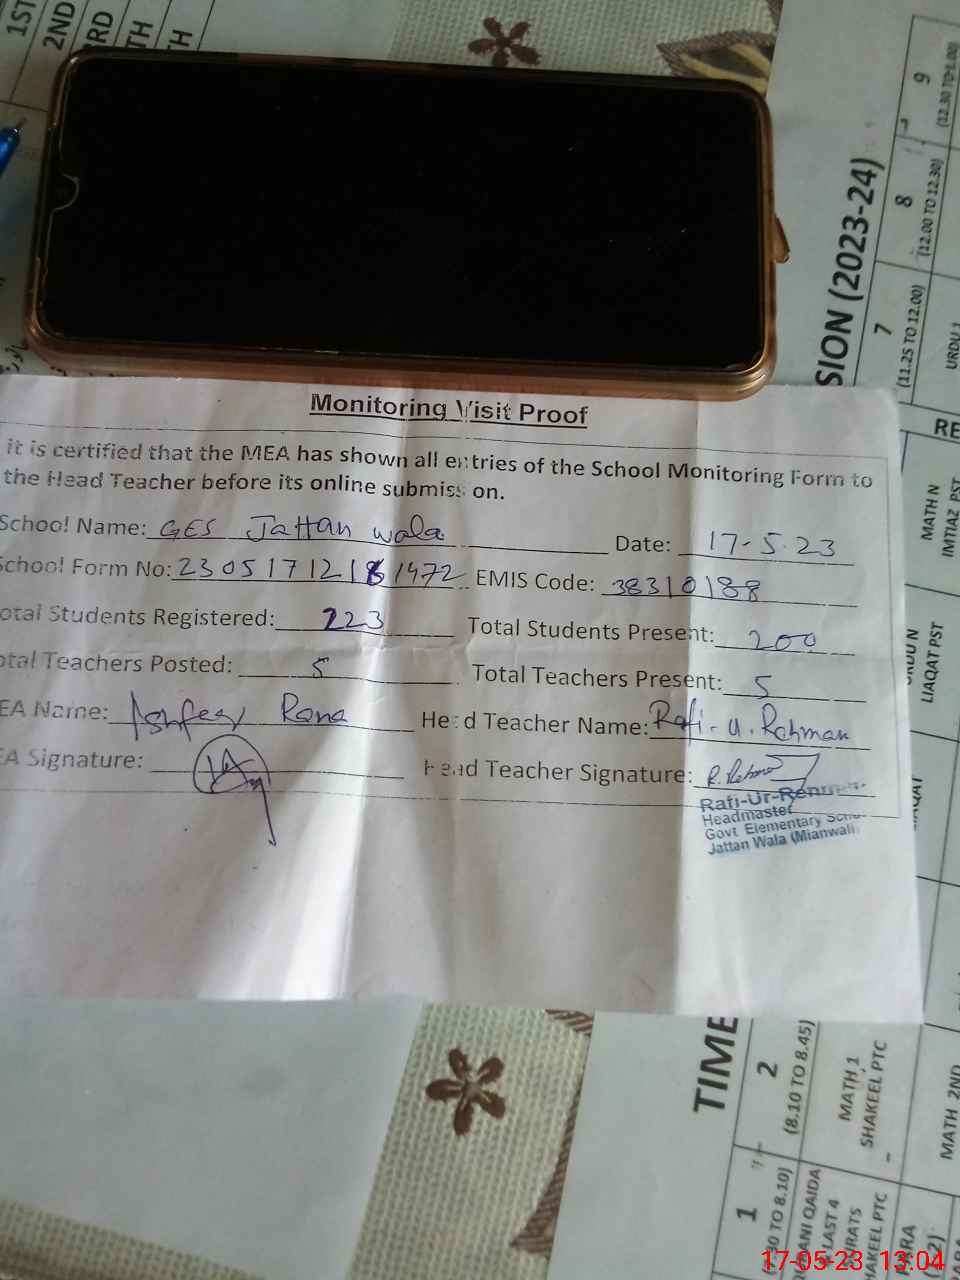 1ST
2ND
RD
TH
TH
SION (2023-24)
9
(12.30 TO 1.00)
8
(12.00 TO 12.30)
7
(11.25 TO 12.00)
URDU 1
RE
MATH N
IMTIAZ PST
LIAQAT PST
Monitoring Visit Proof
it is certified that the MEA has shown all entries of the School Monitoring Form to
the Head Teacher before its online submission.
School Name: GES Jattan wala Date: 17-5-23
School Form No: EMIS Code: 38310188
otal Students Registered: 223 Total Students Present: 200
otal Teachers Posted: 5 Total Teachers Present: 5
EA Name: Ashfeey Rana Head Teacher Name: Rafi-U.Rehman
EA Signature: Head Teacher Signature: R.Rehman
Rafi-Ur-Rehman
Headmaster
Govt Elementary Scho
Jattan Wala (Mianwali)
TIME
2
(8.10 TO 8.45)
MATH 1
SHAKEEL PTC
MATH 2ND
1
(7.30 TO 8.10)
ANI QAIDA
LAST 4
RATS
AKEEL PTC
PARA
17-05-23 13:04